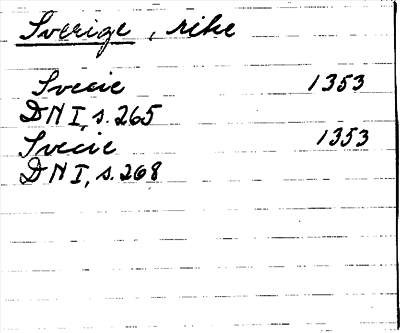 Sverige, rike
Svecie 1353
DN I, s. 265
Svecie 1353
DN I, s. 268